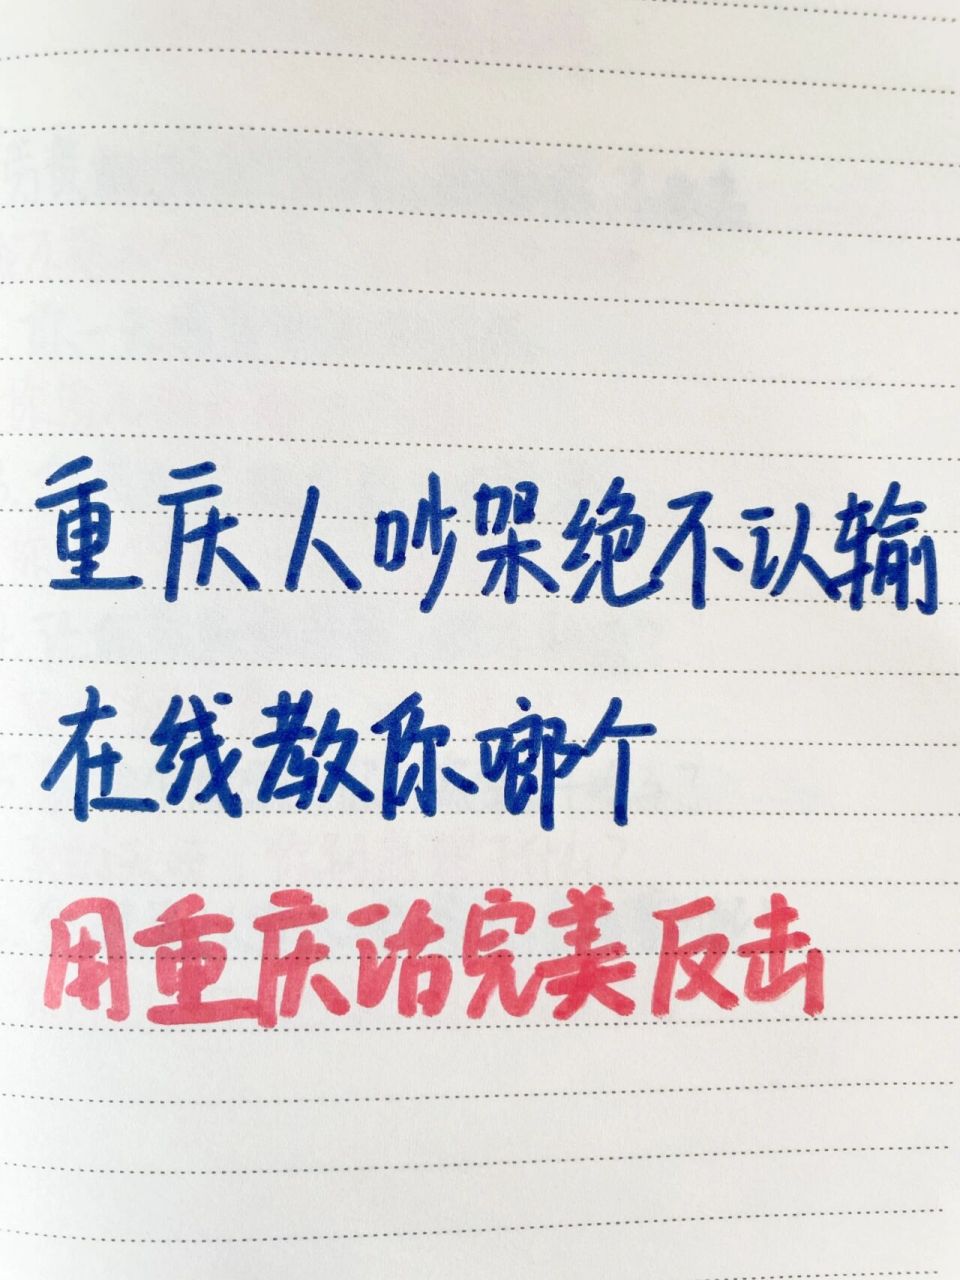 重庆人吵架绝不认输
在线教你啷个
用重庆话完美反击